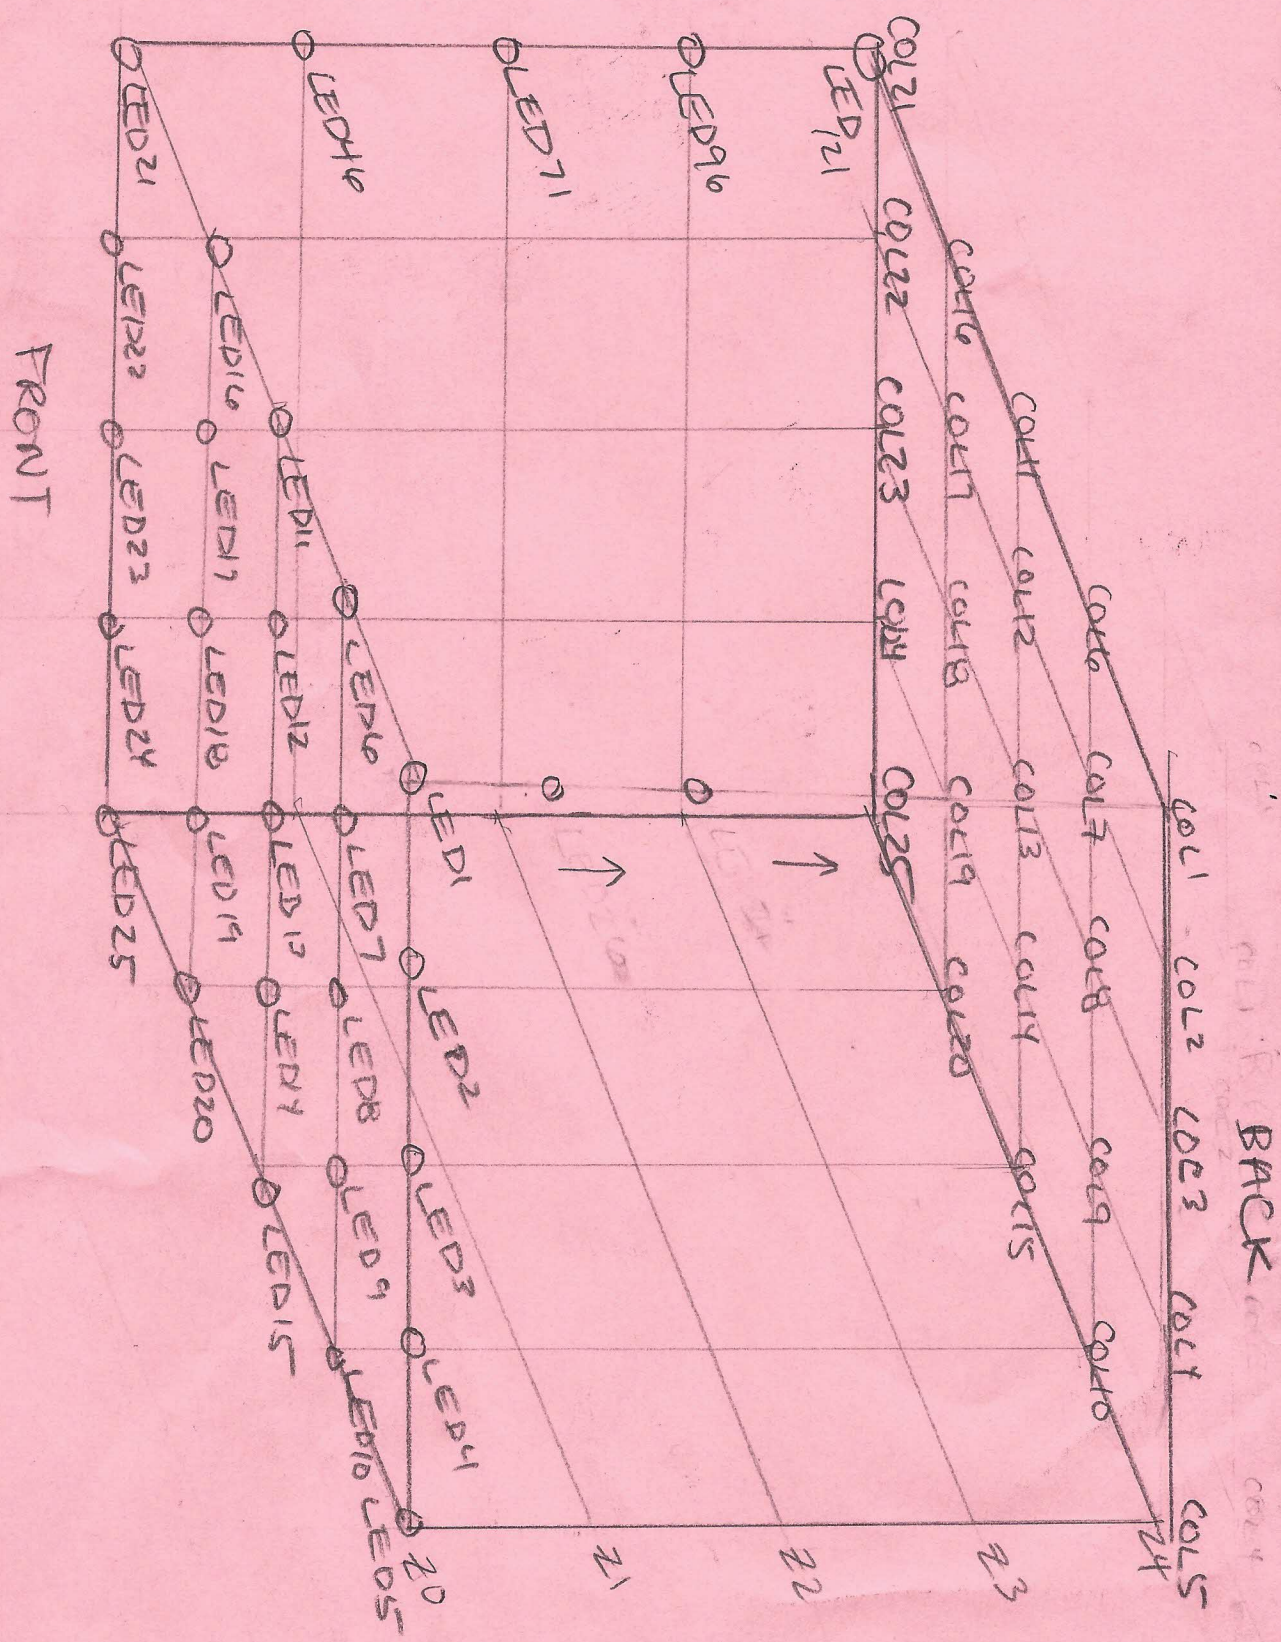 BACK
COL1 COL2 COL3 COL4 COL5
COL6 COL7 COL8 COL9 COL10
COL11 COL12 COL13 COL14 COL15
COL16 COL17 COL18 COL19 COL20
COL21 COL22 COL23 COL24 COL25
Z4
LED
121
Z3
LED96
Z2
LED71
Z1
LED46
Z0
LED1 LED2 LED3 LED4 LED5
LED6 LED7 LED8 LED9 LED10
LED11 LED12 LED 17 LED14 LED15
LED16 LED17 LED18 LED19 LED20
LED21 LED22 LED23 LED24 LED25
FRONT